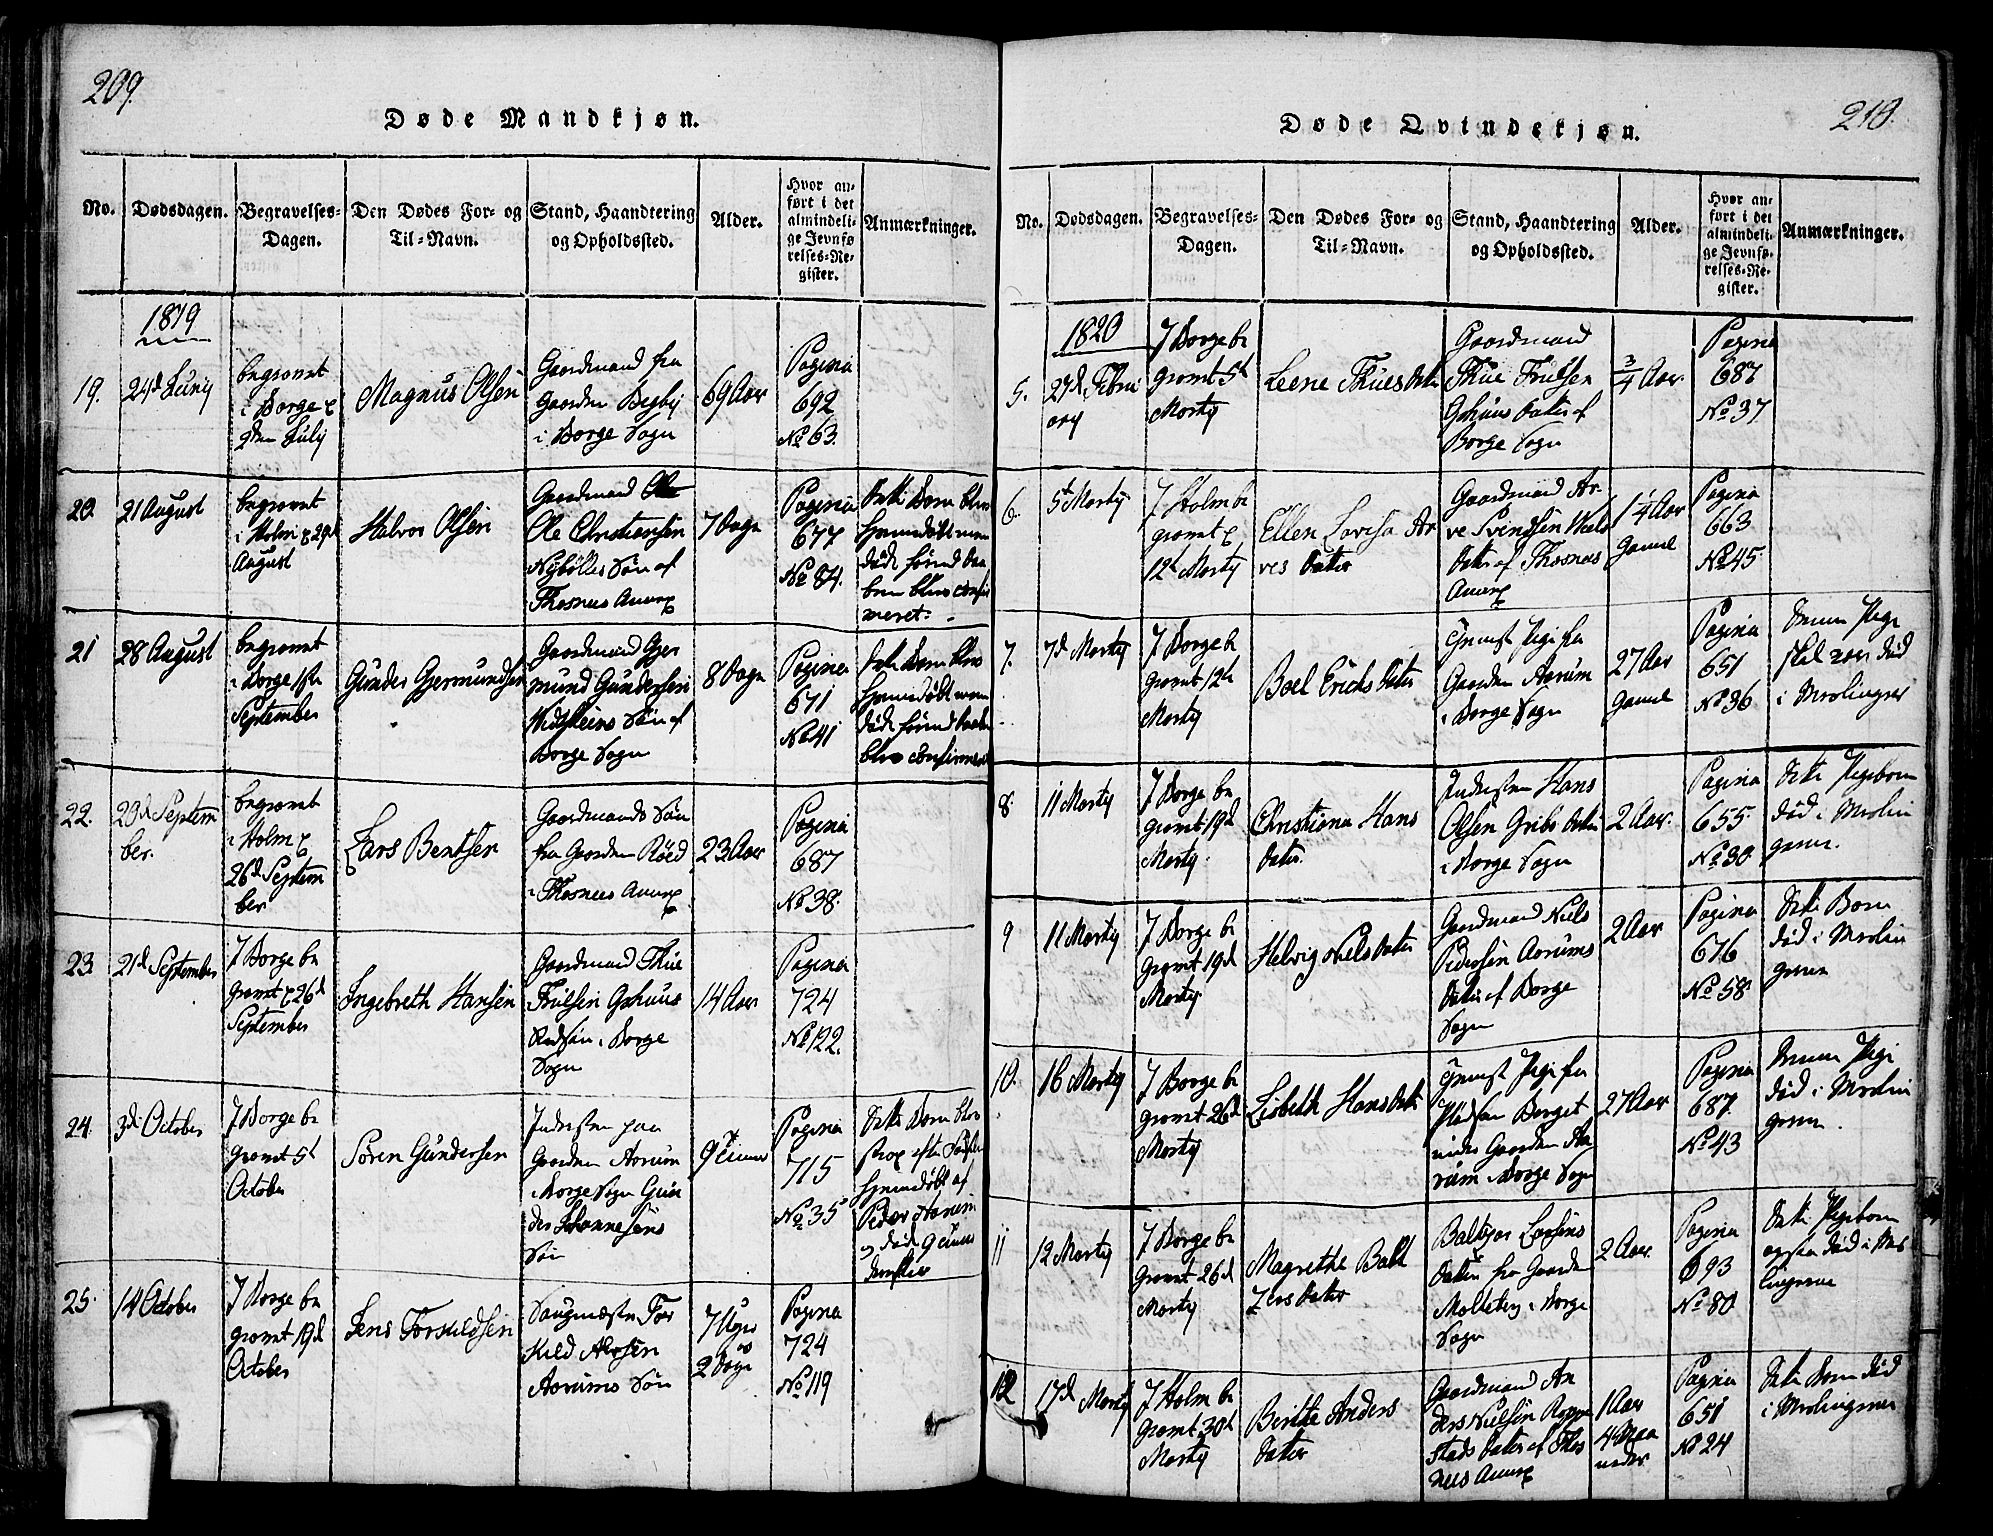 209.
Døde Mandkjøn.
No.
Dødsdagen.
Begravelses-
Dagen.
Den Dødes For- og
Til-Navn.
Stand, Haandtering
og Opholdssted.
Alder.
Hvor an-
ført i det
almindeli-
ge Jevnfø
relses-Re-
gister.
Anmærkninger.
1819
19.
24d Junij
begravet
i Borge
den Julij
Magnus Olsen
Gaardmand fra
Gaarden Begby
i Borge Sogn
69 Aar
Pagina
692
No 63.
20.
21 August
begravet
i Holm 29d
August
Halvor Olsen
Gaardmand
Ole Christiansen
Nybölles Søn af
Thosnes Annex
7 Dage
Pagina
677
No 84.
Dette Barn blev
hjemmedøbt men
døde førend Daa
ben blev confir
meret.
21
28 August
begravet
i Borge
September
Gunder Gjermundsen
Gaardmand Gjer
mund Gundersen
Søn af
Borge Sogn
8 Dage
Pagina
671
No 41
Dette Barn blev
hjemmedøbt men
døde førend Daaben
blev confirmeret
22.
20d Septem
ber.
begravet
i Holm
26d Septem
ber
Lars Bentsen
Gaardmands Søn
fra Gaarden Röed
i Thosnes Annex
23 Aar
Pagina
687
No 38.
23.
21d September
I Borge be
gravet 26d
September
Ingebreth Hansen
Gaardmand Thue
Gahuus
i Borge
Sogn
14 Aar
Pagina
724
No 122.
24.
3d October
I Borge be
gravet 5t
October
Søren Gundersen
Indersten paa
Gaarden Aarum
i Borge Sogn Gun
der Johannesens
Søn
9 Timer
Pagina
715
No 35
Dette Barn blev
strax efter Fødslen
hjemmedøbt af
Peder Aarum
og døde 9 Timer
derefter
25.
14 October
I Borge be
gravet 19d
October
Jens Torkildsen
Saugmester Tor
kild
Aarums Søn
7 Uger
og
2 Dage
Pagina
724
No 119
210.
Døde Qvindekjøn.
No.
Dødsdagen.
Begravelses-
Dagen.
Den Dødes For- og
Til-Navn.
Stand, Haandtering
og Opholdssted.
Alder.
Hvor an-
ført i det
almindeli-
ge Jevnfø-
relses-Re-
gister.
Anmærkninger.
1820
5.
27d Febru
ary
I Borge be
gravet 5t
Martij
Leene Thues Dater
Gaardmand
Thue
Gahuus Dater af
Borge Sogn
3/4 Aar
Pagina
687
No 37
6.
5t Martij
I Holm be
gravet
12t Martij
Ellen Lovisa Ar
ves Dater
Gaardmand Ar-
ve Svendsen
Dater af Thosnes
Annex
1 1/4 Aar
Gamel
Pagina
663
No 45
7.
7d Martij
I Borge be
gravet 12te
Martij
Boel Erichs Dater
Pige fra
Gaarden Aarum
i Borge Sogn
27 Aar
Gamel
Pagina
651
No 36
Denne Pige
død
i Mæslinger
8.
11 Martij
I Borge be
gravet 19d
Martij.
Christiana Hans
Dater.
Indersten Hans
Olsen Dater
i Borge Sogn
2 Aar.
Pagina
655
No 30
Dette Pigebarn
død i Mæslin
gerne.
9
11 Martij
I Borge be
gravet 19d
Martij
Helvig Niels Dater
Gaardmand Niels
Pedersen Aarums
Dater af Borge
Sogn
2 Aar
Pagina
676
No 58
Dette Barn
død i Mæslin
gerne
10.
16 Martij
I Borge be
gravet 26d
Martij
Lisbeth Hans Dater
Pige fra
Pladsen Berget
under Gaarden Aa
rum i Borge Sogn
27 Aar
Pagina
687.
No 43
Denne Pige
død i Mæslin
gerne.
11
12 Martij
I Borge be
gravet 26d
Martij
Magrethe Balt
zers Dater
Baltzer Larsens
Dater fra Gaarden
i Borge
Sogn
2 Aar.
Pagina
693
No 80
Dette Pigebarn
ogsaa død i Mæs
lingerne
12
17d Martij
I Holm be
gravet 30t
Martij
Berthe Anders
Dater
Gaardmand An
ders Nielsen Roppe
stads Dater af Thos
nes Annex
1 Aar
4 Maa
neder
Pagina
651
No 24
Dette Barn død
i Mæslingerne